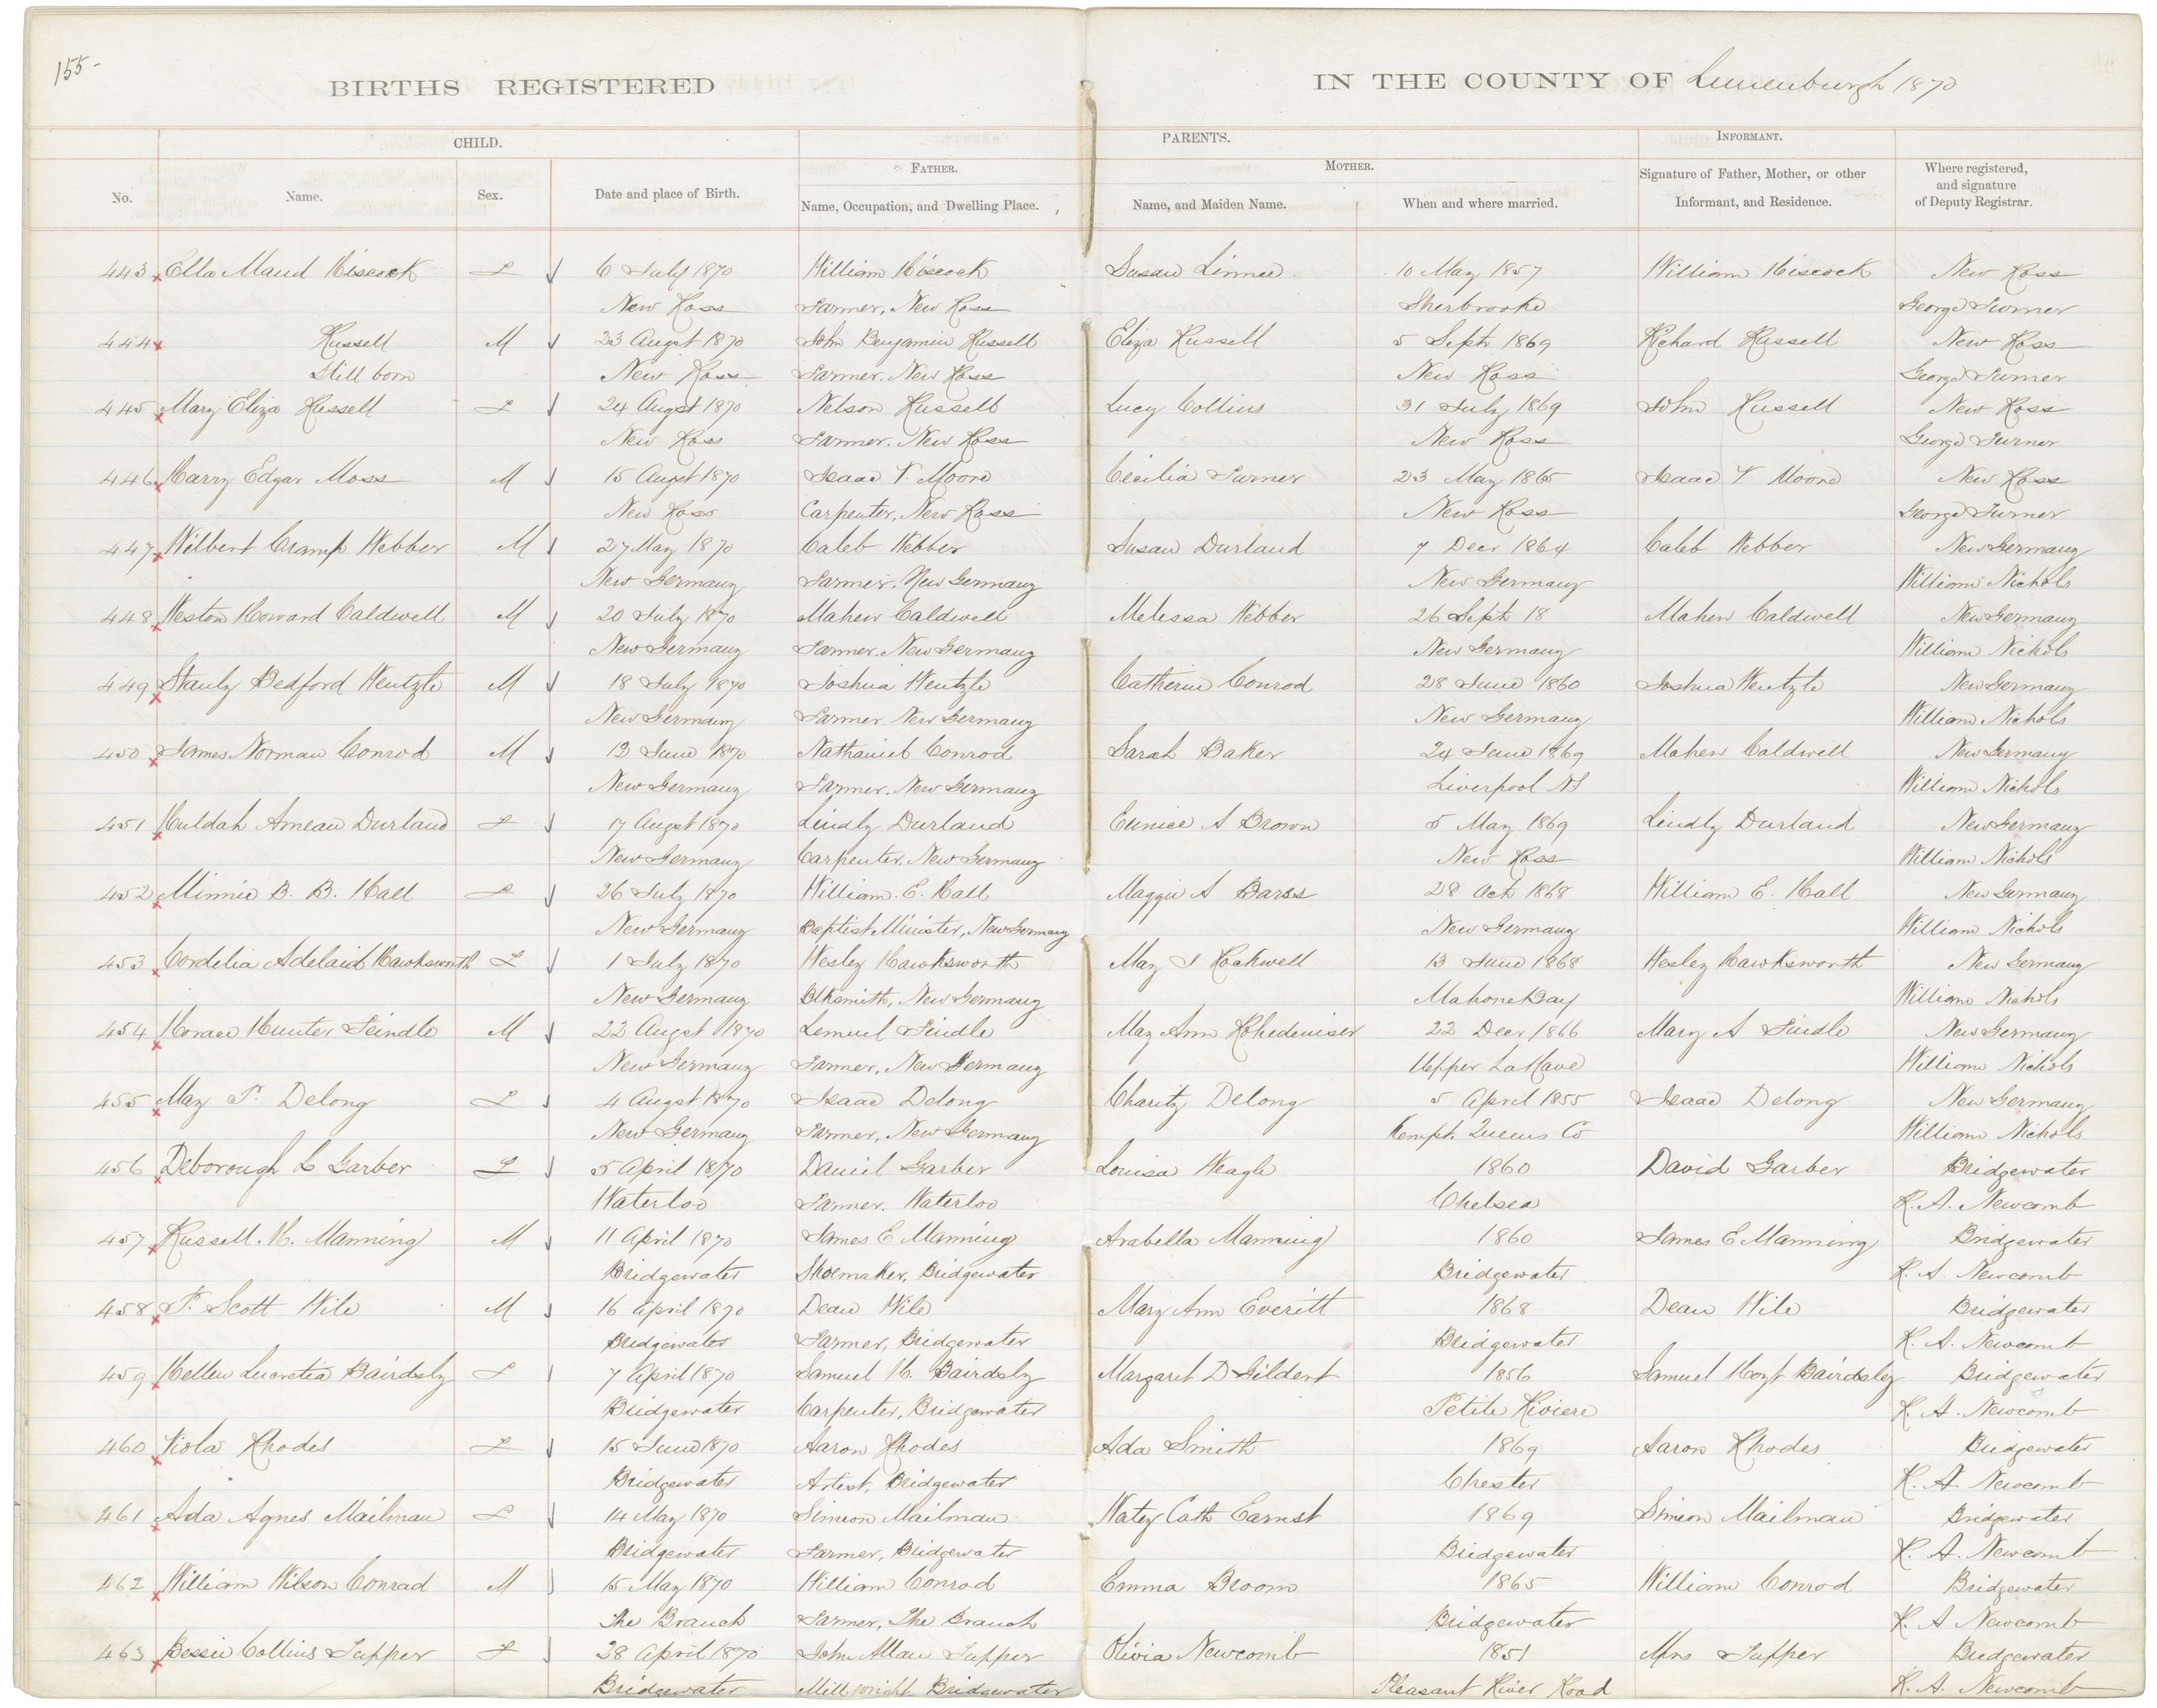 155-
BIRTHS REGISTERED IN THE COUNTY OF Lunenburgh 1870
CHILD. PARENTS. INFORMANT.
FATHER. MOTHER.
No. Name. Sex. Date and place of Birth. Name, Occupation, and Dwelling Place. Name, and Maiden Name. When and where married. Signature of Father, Mother, or other Informant, and Residence. Where registered, and signature of Deputy Registrar.
443 Ella Maud Hiscock F 6 July 1870 William Hiscock Susan 10 May 1857 William Hiscock New Ross
New Ross Farmer, New Ross Sherbrooke George Turner
444 Russell M 23 Augst 1870 John Benjamin Russell Eliza Russell 5 Septr 1869 Richard Russell New Ross
Still born New Ross Farmer. New Ross New Ross George Turner
445 Mary Eliza Russell F 24 Augst 1870 Nelson Russell Lucy Collins 31 July 1869 John Russell New Ross
New Ross Farmer. New Ross New Ross George Turner
446 Harry Edgar Moss M 15 Augst 1870 Isaac T. Moore Cecilia Turner 23 May 1865 Isaac T Moore New Ross
New Ross Carpenter, New Ross New Ross George Turner
447 Wilbert Cramp Webber M 27 May 1870 Caleb Webber Susan Durland 7 Decr 1864 Caleb Webber New Germany
New Germany Farmer. New Germany New Germany William Nichols
448 Weston Howard Caldwell M 20 July 1870 Mahew Caldwell Melissa Webber 26 Sept 18 Mahew Caldwell New Germany
New Germany Farmer. New Germany New Germany William Nichols
449 Stanly Bedford Wentzle M 18 July 1870 Joshua Wentzle Catherine Conrod 28 June 1860 Joshua Wentzle New Germany
New Germany Farmer. New Germany New Germany William Nichols
450 James Norman Conrod M 13 June 1870 Nathaniel Conrod Sarah Baker 24 June 1869 Mahew Caldwell New Germany
New Germany Farmer. New Germany Liverpool NS William Nichols
451 Huldah Amean Durland F 17 Augst 1870 Lindly Durland Eunice A Brown 5 May 1869 Lindly Durland New Germany
New Germany Carpenter, New Germany New Ross William Nichols
452 Minnie B. B. Hall F 26 July 1870 William. E. Hall Maggie A Barss 28 Oct 1868 William E. Hall New Germany
New Germany Baptist Minister, New Germany New Germany William Nichols
453 Cordelia Adelaid Hawksworth F 1 July 1870 Wesley Hawksworth May J Rockwell 13 June 1868 Wesley Hawksworth New Germany
New Germany Blksmith, New Germany Mahone Bay William Nichols
454 Horace Hunter Feindle M 22 Augst 1870 Lemuel Findle May Ann 22 Decr 1866 Mary A Findle New Germany
New Germany Farmer, New Germany Upper LaHave William Nichols
455 May P. Delong F 4 Augst 1870 Isaac Delong Charity Delong 5 April 1855 Isaac Delong New Germany
New Germany Farmer, New Germany Kempt. Queens Co William Nichols
456 Deborough L Garber F 5 April 1870 Daniel Garber Louisa Weagle 1860 David Garber Bridgewater
Waterloo Farmer. Waterloo Chelsea R. A. Newcomb
457 Russell. H. Manning M 11 April 1870 James E Manning Arabella Manning 1860 James E Manning Bridgewater
Bridgewater Shoemaker, Bridgewater Bridgewater R. A. Newcomb
458 P. Scott Wile M 16 April 1870 Dean Wile Mary Ann Everitt 1868 Dean Wile Bridgewater
Bridgewater Farmer, Bridgewater Bridgewater R. A. Newcomb
459 Hellen Lucretia Bairdsly F 7 April 1870 Samuel H. Bairdsly Margaret D Gildert 1856 Samuel Hoyt Bairdsley Bridgewater
Bridgewater Carpenter, Bridgewater Petite Riviere R. A. Newcomb
460 Viola Rhodes F 15 June 1870 Aaron Rhodes Ada Smith 1869 Aaron Rhodes Bridgewater
Bridgewater Artist, Bridgewater Chester R. A. Newcomb
461 Ada Agnes Mailman F 14 May 1870 Simeon Mailman Cath Earnst 1869 Simeon Mailman Bridgewater
Bridgewater Farmer, Bridgewater Bridgewater R. A. Newcomb
462 William Wilson Conrad M 15 May 1870 William Conrod Emma Broom 1865 William Conrod Bridgewater
The Branch Farmer, The Branch Bridgewater R. A Newcomb
463 Bessie Collins Tupper F 28 April 1870 John Allan Tupper Olivia Newcomb 1851 Mrs Tupper Bridgewater
Bridgewater Millwright Bridgewater Pleasant River Road R. A. Newcomb